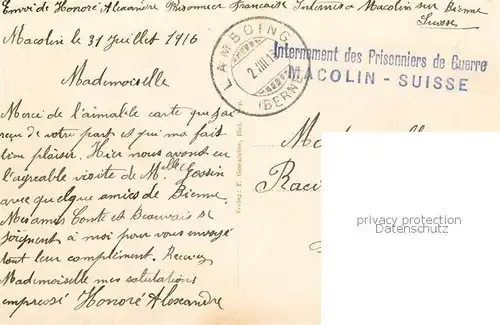 Envoi de Honoré Alexandre Prisonnier Française Internés a Macolin sur Bienne
Suisse
Macolin le 31 Juillet 1916
LAMBOING
2.VIII.1
(BERNE)
Internement des Prisonniers de Guerre
MACOLIN - SUISSE
Mademoiselle
Merci de l'aimable carte que j'ai
reçu de votre part et qui ma fait
bien plaisir. Hier nous avont eu
l'agreable visite de Mlle Gossin
avec quelque amies de Bienne
Mes amis Conte et Beauvais se
joignent à moi pour vous envoyé
tout leur complément. Recevez
Mademoiselle mes salutations
empressé Honoré Alexandre
Verlag: F. Biel.
privacy protection
Datenschutz